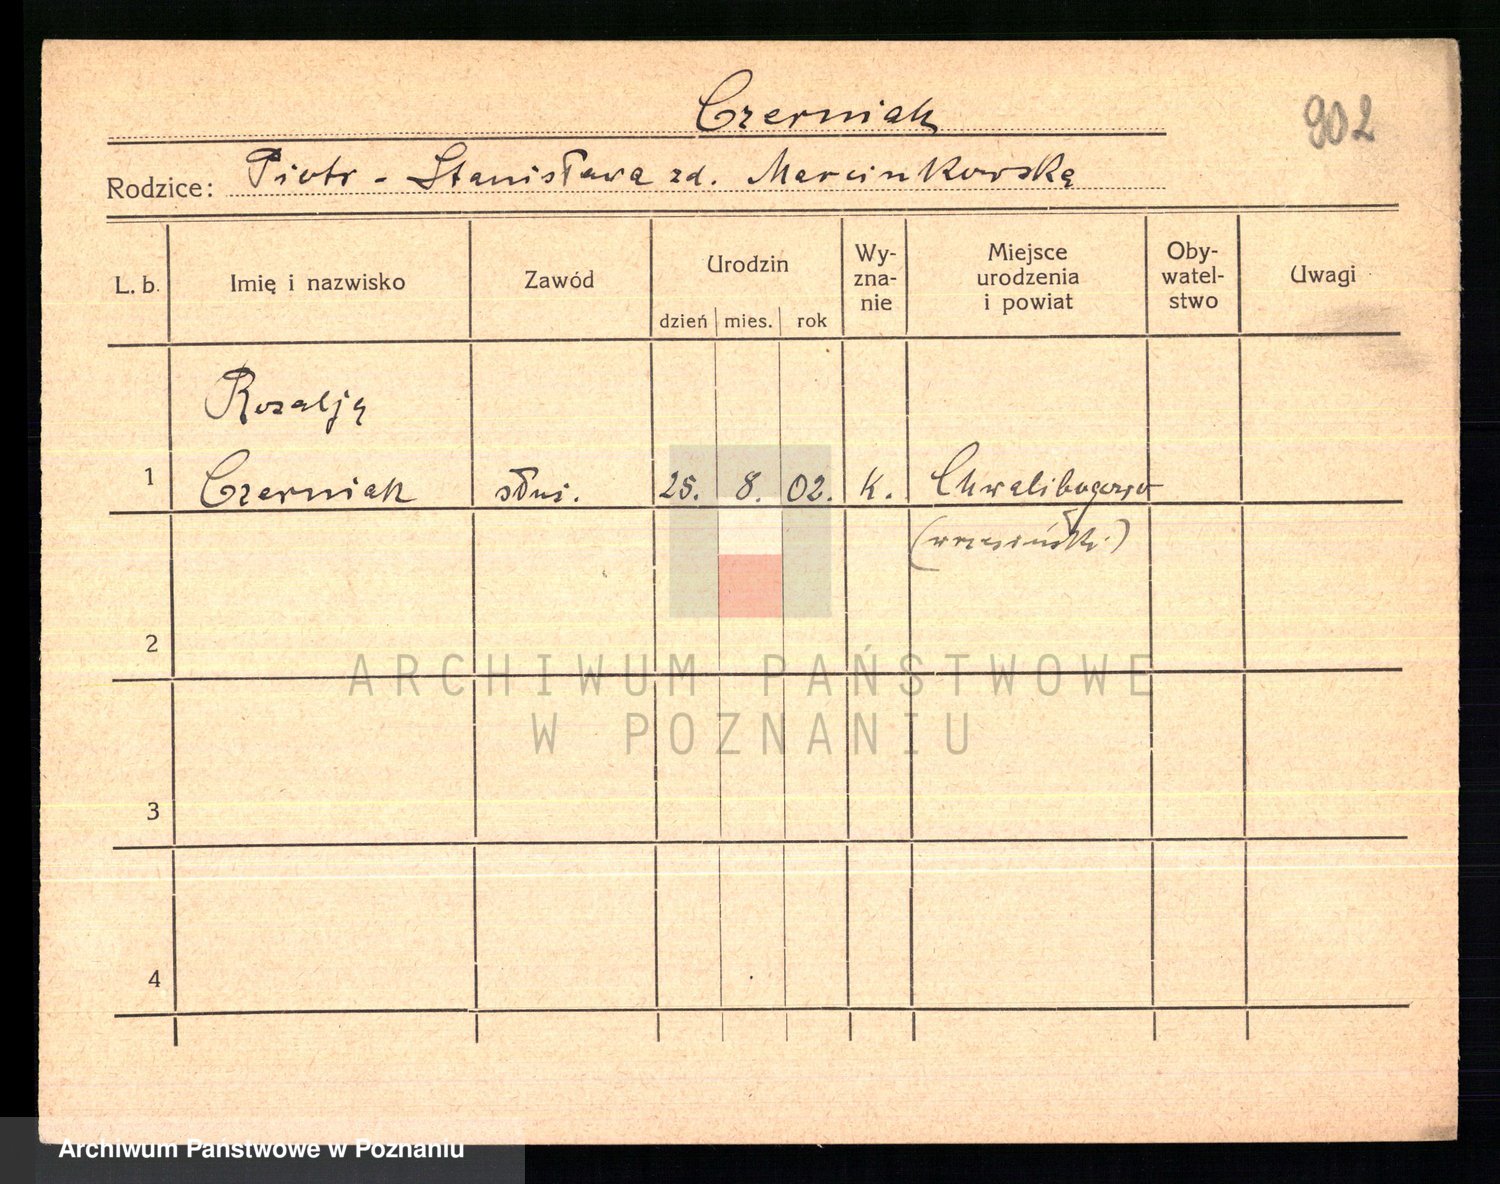 Czerniak
902
Rodzice: Piotr - Stanisława zd. Marcinkowska
L. b.
Imię i nazwisko
Zawód
Urodzin
dzień mies. rok
Wy-
zna-
nie
Miejsce
urodzenia
i powiat
Oby-
watel-
stwo
Uwagi
Rozalja
1 Czerniak służ. 25. 8. 02. k. Chwalibogowo
(wrzesiński)
2
3
4
ARCHIWUM PAŃSTWOWE
W POZNANIU
Archiwum Państwowe w Poznaniu